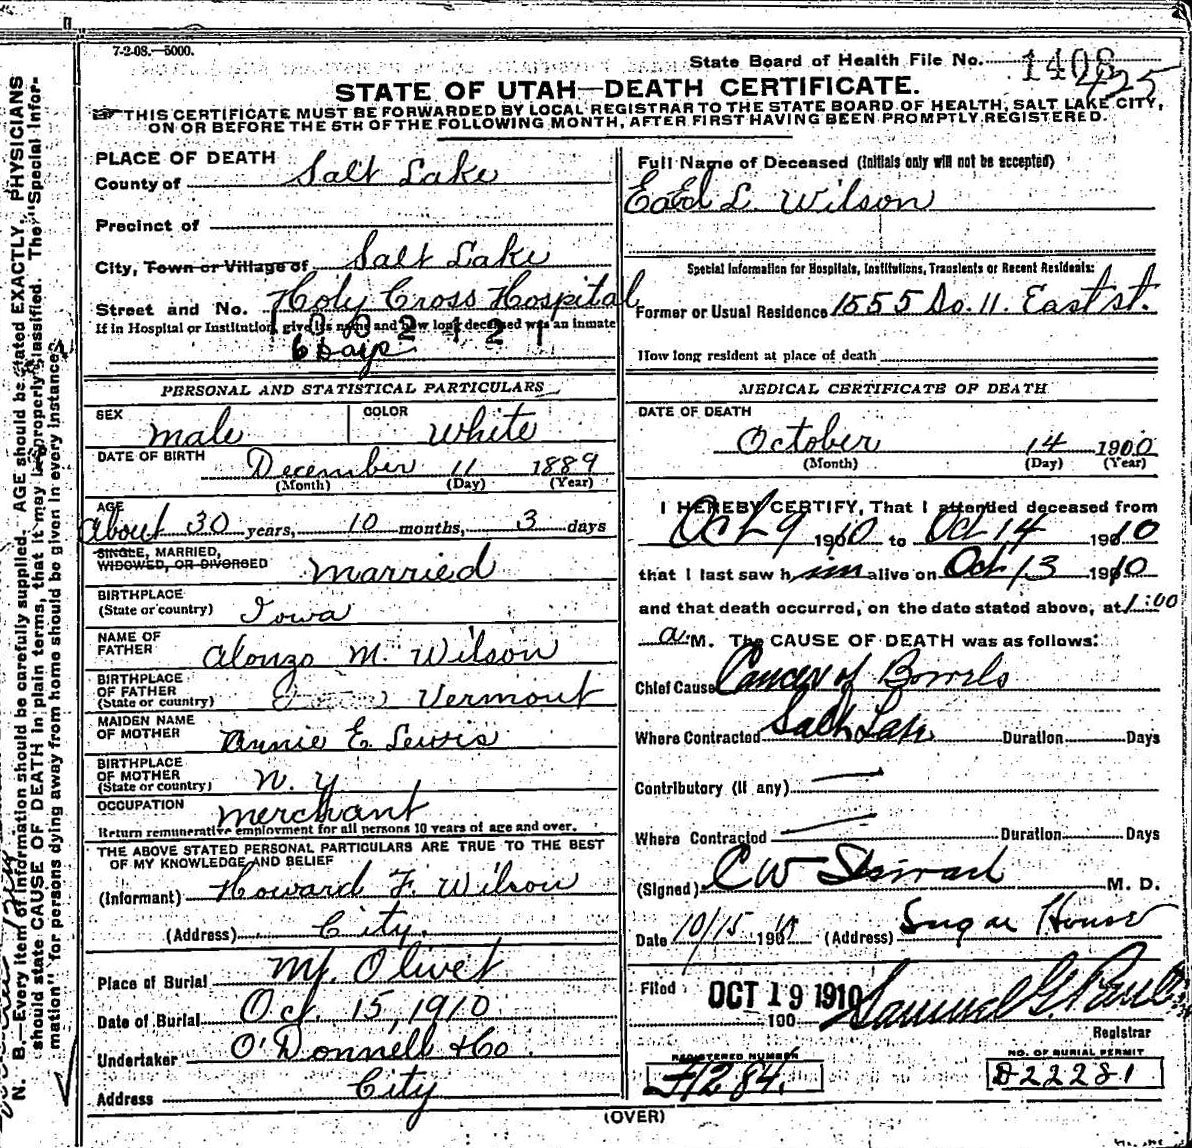 7-2-08.—5000.
State Board of Health File No. 1408
425
STATE OF UTAH—DEATH CERTIFICATE.
THIS CERTIFICATE MUST BE FORWARDED BY LOCAL REGISTRAR TO THE STATE BOARD OF HEALTH, SALT LAKE CITY,
ON OR BEFORE THE 5TH OF THE FOLLOWING MONTH, AFTER FIRST HAVING BEEN PROMPTLY REGISTERED.
PLACE OF DEATH
County of Salt Lake
Precinct of
City, Town or Village of Salt Lake
Street and No. Holy Cross Hospital
If in Hospital or Institution, give its name and how long deceased was an inmate
6 Days
Full Name of Deceased (Initials only will not be accepted)
L. Wilson
Special Information for Hospitals, Institutions, Transients or Recent Residents:
Former or Usual Residence 1555 So. 11. East st.
How long resident at place of death
PERSONAL AND STATISTICAL PARTICULARS
SEX male COLOR White
DATE OF BIRTH December 11 1889
(Month) (Day) (Year)
AGE
About 30 years, 10 months, 3 days
SINGLE, MARRIED,
WIDOWED, OR DIVORCED married
BIRTHPLACE
(State or country) Iowa
NAME OF
FATHER Alonzo M. Wilson
BIRTHPLACE
OF FATHER
(State or country) Vermont
MAIDEN NAME
OF MOTHER Annie E. Lewis
BIRTHPLACE
OF MOTHER
(State or country) N. Y.
OCCUPATION merchant
Return remunerative employment for all persons 10 years of age and over.
THE ABOVE STATED PERSONAL PARTICULARS ARE TRUE TO THE BEST
OF MY KNOWLEDGE AND BELIEF
(Informant) Howard F. Wilson
(Address) City.
Place of Burial Mt. Olivet
Date of Burial Oct. 15, 1910
Undertaker O'Donnell & Co.
Address City
MEDICAL CERTIFICATE OF DEATH
DATE OF DEATH
October 14 1900
(Month) (Day) (Year)
I HEREBY CERTIFY, That I attended deceased from
Oct 9 1910 to Oct 14 1910
that I last saw him alive on Oct 13 1910
and that death occurred, on the date stated above, at 1:00
a M. The CAUSE OF DEATH was as follows:
Chief Cause Cancer of Bowels
Where Contracted Salt Lake Duration Days
Contributory (if any)
Where Contracted Duration Days
(Signed) C W M. D.
Date 10/15 1910 (Address) Sugar House
Filed OCT 19 1910 Samuel G. Paul
190
Registrar
REGISTERED NUMBER
1284
NO. OF BURIAL PERMIT
D22281
(OVER)
N. B.—Every item of information should be carefully supplied. AGE should be stated EXACTLY. PHYSICIANS
should state CAUSE OF DEATH in plain terms, that it may be properly classified. The "Special Infor-
mation" for persons dying away from home should be given in every instance.